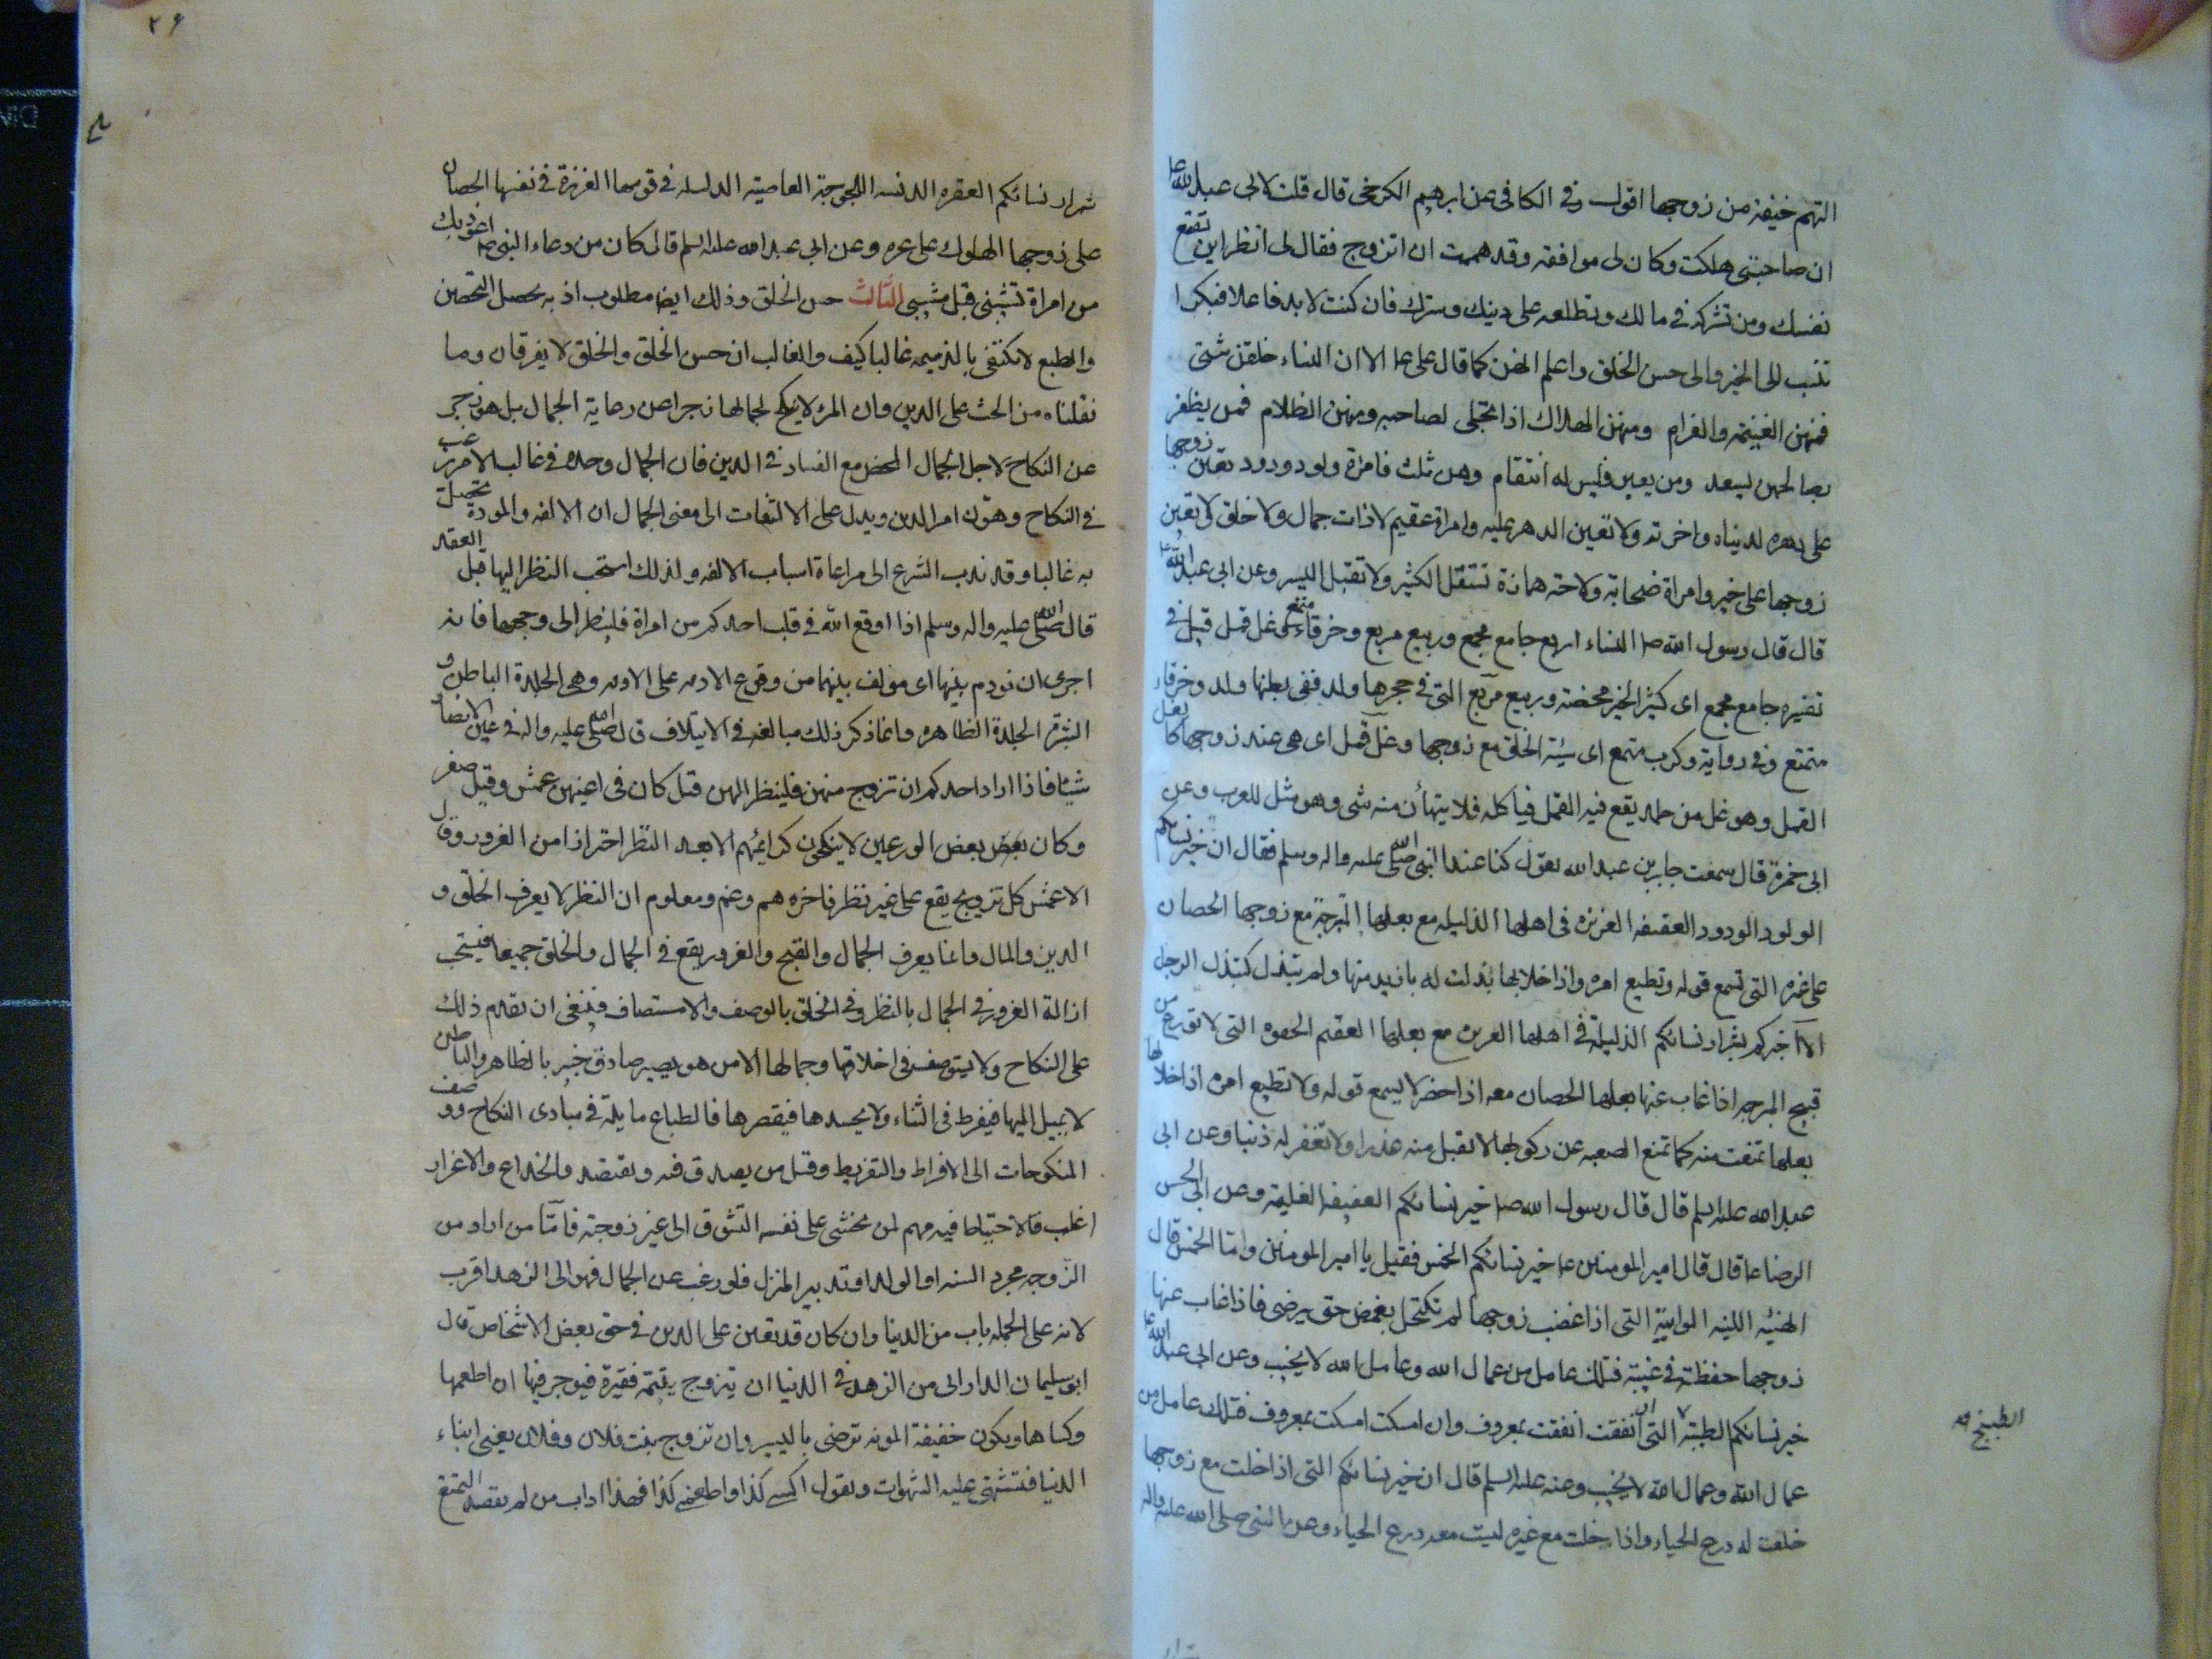 التهم خيفة من زوجها اقول وفى الكافى عن ابرهيم الكرخى قال قلت لابى عبد الله ع
ان صاحبتى هلكت وكان لى موافقه وقد هممت ان اتزوج فقال لى انظر اين تضع
نفسك ومن تشركه فى مالك وتطلعه على دينك وسرك فان كنت لا بد فاعلا فبكرا
تنسب الى الخير والى حسن الخلق واعلم انهن كما قال على ع الا ان النساء خلقن شتى
فمنهن الغنيمة والغرام ومنهن الهلال اذا تجلى لصاحبه ومنهن الظلام فمن يظفر
بصالحهن يسعد ومن يعين فليس له انتقام وهن ثلث فامراة ولود ودود تعين زوجها
على دهره لدنياه واخرته ولا تعين الدهر عليه وامراة عقيم لا ذات جمال ولا خلق ولا تعين
زوجها على خير وامراة صخابة ولاجه همازة تستقل الكثير ولا تقبل اليسير وعن ابى عبد الله ع
قال قال رسول الله ص النساء اربع جامع مجمع وربيع مربع وخرقاء مقمع وغل قمل قيل فى
تفسيره جامع مجمع اى كثير الخير مخصبة وربيع مربع التى فى حجرها ولد ففى بطنها ولد وخرقاء
متمتع وفى رواية وكرب متمع اى سيئة الخلق مع زوجها وغل قمل اى هى عند زوجها كالغل
القمل وهو غل من جلد يقع فيه القمل فياكله فلا يتهيأ منه شى وهو مثل للعرب وعن
ابى حمزة قال سمعت جابر بن عبد الله يقول كنا عند النبى صلى الله عليه واله وسلم فقال ان خير نسائكم
الولود الودود العفيفه العزيزه فى اهلها الذليله مع بعلها المتبرجة مع زوجها الحصان
على غيره التى تسمع قوله وتطيع امره واذا خلا بها بذلت له ما يريد منها ولم تبتذل كتبذل الرجل
الا اخبركم بشرار نسائكم الذليلة فى اهلها العزيزه مع بعلها العقيم الحقوه التى لا تورع من
قبيح المتبرجه اذا غاب عنها بعلها الحصان معه اذا حضر لا يسمع قوله ولا تطيع امره اذا خلا بها
بعلها تمنعت منه كما تمنع الصعبه عن ركوبها لا تقبل منه عذرا ولا تغفر له ذنبا وعن ابى
عبد الله عليه السلم قال قال رسول الله ص خير نسائكم العفيفه الغليمة وعن ابى الحسن
الرضا ع قال قال امير المومنين ع خير نسائكم الخمس فقيل يا امير المومنين وما الخمس قال
الهنيئه اللينه المواتية التى اذا غضب زوجها لم تكتحل بغمض حتى يرضى فاذا غاب عنها
زوجها حفظته فى غيبته فتلك عامل من عمال الله وعامل الله لا يخيب وعن ابى عبد الله ع
خير نسائكم الطيبة التى ان انفقت انفقت بمعروف وان امسكت امسكت بمعروف فتلك عامل من
عمال الله وعمال الله لا يخيب وعنه عليه السلم قال ان خير نسائكم التى اذا خلت مع زوجها
خلعت له درع الحياء واذا خلت مع غيره لبست معه درع الحياء وعن النبى صلى الله عليه واله
الطبيخ
٢٦
شرار نسائكم العقره الدنسه اللجوجة العاصية الذليله فى قومها العزيزة فى نفسها الحصان
على زوجها الهلوك على غيره وعن ابى عبد الله عليه السلم قال كان من دعاء النبى ص اعوذ بك
من امراة تشيبنى قبل مشيبى الثالث حسن الخلق وذلك ايضا مطلوب اذ به يحصل التحصين
والطبع لا يكتفى بالذميمه غالبا كيف والغالب ان حسن الخلق والخلق لا يفرقان وما
نقلناه من الحث على الدين وان المرئة لا ينكح لجمالها زجرا عن رعاية الجمال بل هو زجر
عن النكاح لاجل الجمال المحض مع الفساد فى الدين فان الجمال وحده فى غالب الامر يرغب
فى النكاح وهون امر الدين ويدل على الالتفات الى معنى الجمال ان الالفه والمودة تحصل
به غالبا وقد ندب الشرع الى مراعاة اسباب الالفه ولذلك استحب النظر اليها قبل العقد
قال صلى الله عليه واله وسلم اذا اوقع الله فى قلب احدكم من امراة فلينظر الى وجهها فانه
احرى ان يودم بينهما اى مولف بينهما من وقوع الادمه على الادمه وهى الجلدة الباطنة و
البشرة الجلدة الظاهره وانما ذكر ذلك مبالغه فى الايتلاف قال صلى الله عليه واله فى عين الانصار
شيئا فاذا اراد احدكم ان تزوج منهن فلينظر اليهن قيل كان فى اعينهن عمش وقيل صغر
وكان بعض بعض الورعين لا ينكحون كرائمهم الا بعد النظر احترازا من الغرور وقال
الاعمش كل تزويج يقع على غير نظر فاخره هم وغم ومعلوم ان النظر لا يعرف الخلق و
الدين والمال وانما يعرف الجمال والقبح والغرور يقع فى الجمال والخلق جميعا فيستحب
ازالة الغرور فى الجمال بالنظر وفى الخلق بالوصف والاستيصاف فينبغى ان تقدم ذلك
على النكاح ولا يستوصف فى اخلاقها وجمالها الا من هو بصير صادق خبير بالظاهر والباطن
لا يميل اليها فيفرط فى الثناء ولا يحسدها فيقصرها فالطباع مايلة فى مبادى النكاح ووصف
المنكوحات الى الافراط والتفريط وقل من يصدق فيه ويقتصد والخداع والاغراء
اغلب فالاحتياط فيه مهم لمن يخشى على نفسه التشوق الى غير زوجته فاما من اراد من
الزوجه مجرد السنه او الولد او تدبير المنزل فلو رغب عن الجمال فهو الى الزهد اقرب
لانه على الجمله باب من الدنيا وان كان قد يعين على الدين فى حق بعض الاشخاص قال
ابو سليمان الدارانى من الزهد فى الدنيا ان يتزوج يتيمة فقيرة فيوجر فيها ان اطعمها
وكساها ويكون خفيفة المونه ترضى باليسير وان تزوج بنت فلان وفلان يعنى ابناء
الدنيا فتشتهى عليه الشهوات وتقول اكسنى كذا واطعمنى كذا فهذا اداب من لم يقصد التمتع